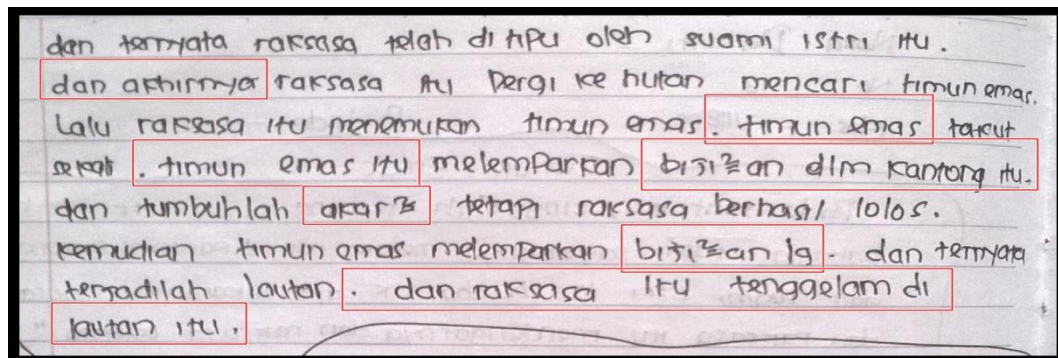 dan ternyata raksasa telah di tipu oleh suami istri itu.
dan akhirnya raksasa itu pergi ke hutan mencari timun emas.
Lalu raksasa itu menemukan timun emas. timun emas takut
sekali. timun emas itu melemparkan biji²an dlm kantong itu.
dan tumbuhlah akar² tetapi raksasa berhasil lolos.
kemudian timun emas melemparkan biji²an lg. dan ternyata
terjadilah lautan. dan raksasa itu tenggelam di
lautan itu.